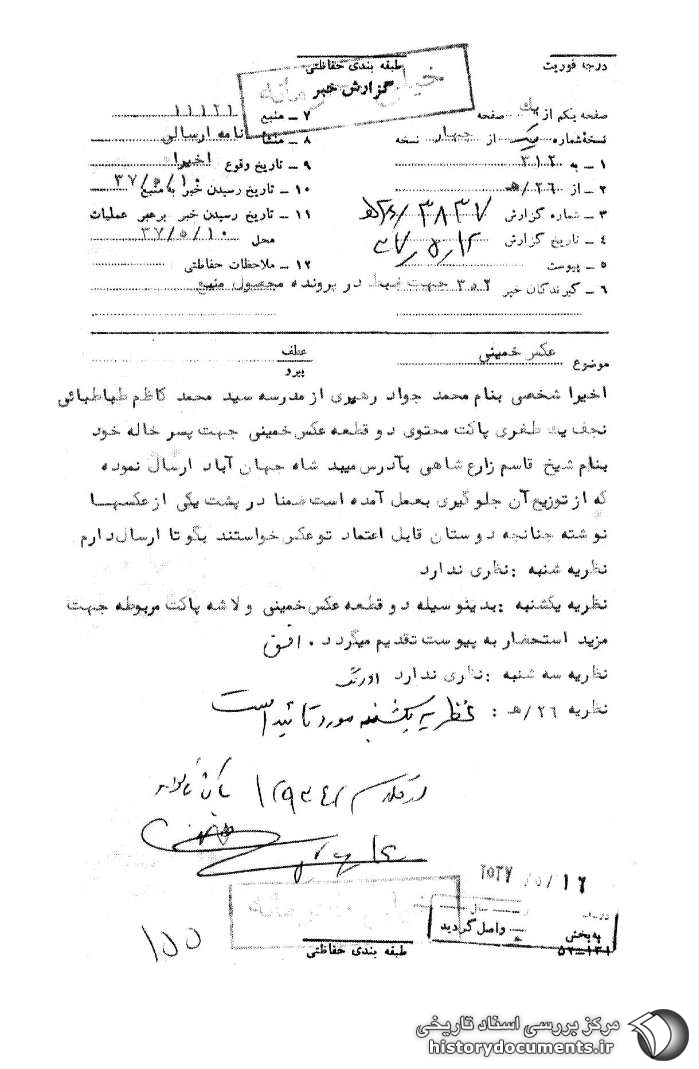 درجه فوریت
طبقه بندی حفاظتی
خیلی محرمانه
گزارش خبر
صفحه یکم از یک صفحه
نسخه شماره یک از چهار نسخه
۱ ـ به ۳۱۲
۲ ـ از ۲۶/هـ
۳ ـ شماره گزارش ۳۸۳۷/۲۶هـ
۴ ـ تاریخ گزارش ۳۷/۵/۱۲
۵ ـ پیوست
۶ ـ گیرندگان خبر ۳۵۲ جهت ضبط در پرونده محصول منبع
۷ ـ منبع ۱۱۱۲۱
۸ ـ منشأ نامه ارسالی
۹ ـ تاریخ وقوع اخیرا
۱۰ ـ تاریخ رسیدن خبر به منبع ۳۷/۵/۱۰
۱۱ ـ تاریخ رسیدن خبر برهبر عملیات
محل ۳۷/۵/۱۰
۱۲ ـ ملاحظات حفاظتی
موضوع عکس خمینی
عطف
پیرو
اخیرا شخصی بنام محمد جواد رهبری از مدرسه سید محمد کاظم طباطبائی
نجف یک طغری پاکت محتوی دو قطعه عکس خمینی جهت پسر خاله خود
بنام شیخ قاسم زارع شاهی بآدرس میبد شاه جهان آباد ارسال نموده
که از توزیع آن جلوگیری بعمل آمده است ضمنا در پشت یکی از عکسها
نوشته چنانچه دوستان قابل اعتماد تو عکس خواستند بگو تا ارسال دارم
نظریه شنبه : نظری ندارد
نظریه یکشنبه : بدینوسیله دو قطعه عکس خمینی و لاشه پاکت مربوطه جهت
مزید استحضار به پیوست تقدیم میگردد . افق
نظریه سه شنبه : نظری ندارد اورنگ
نظریه ۲۶/هـ : نظریه یکشنبه مورد تائید است
۲۵۳۷/۵/۱۶
واصل گردید
به بخش
طبقه بندی حفاظتی
۵۲ــ۱۳۱
۱۵۵
مرکز بررسی اسناد تاریخی
historydocuments.ir